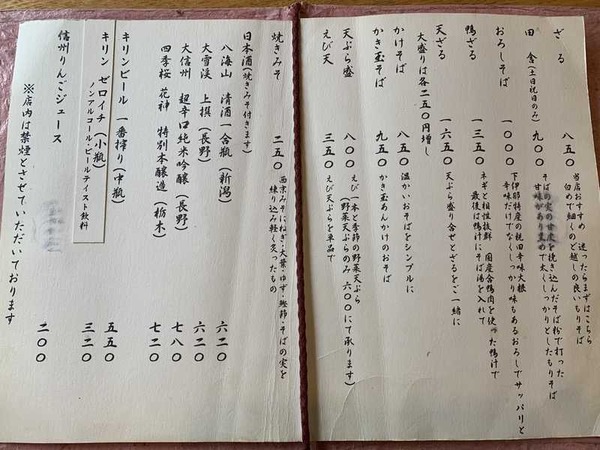 ざる　八五〇
当店おすすめ　迷ったらまずはこちら
白めで細くのど越しの良いもりそば
田舎（土日祝日のみ）　九〇〇
そばの実の甘皮を挽き込んだそば粉で打った
甘味があり黒めで太くしっかりとしたもりそば
おろしそば　一〇〇〇
下伊那特産の親田辛味大根
辛味だけでなくしっかり味もあるおろしでサッパリと
鴨ざる　一三五〇
ネギと相性抜群　国産合鴨肉を使った鴨汁で
最後は鴨汁にそば湯を入れて
天ざる　一六五〇　天ぷら盛り合せとざるをご一緒に
大盛りは各二五〇円増し
かけそば　八五〇　温かいおそばをシンプルに
かき玉そば　九五〇　かき玉あんかけのおそば
天ぷら盛　八〇〇　えび一本と季節の野菜天ぷら
（野菜天ぷらのみ　六〇〇にて承ります）
えび天　三五〇　えび天ぷらを単品で
焼きみそ　二五〇
西京みそにねぎ・大葉・ゆず・鰹節・そばの実を
練り込み軽く炙ったもの
日本酒（焼きみそ付きます）
八海山　清酒一合瓶（新潟）　六二〇
大雪渓　上撰（長野）　六二〇
大信州　超辛口純米吟醸（長野）　七八〇
四季桜　花神　特別本醸造（栃木）　七二〇
キリンビール　一番搾り（中瓶）　五五〇
キリン　ゼロイチ（小瓶）　三二〇
ノンアルコール・ビールテイスト飲料
信州りんごジュース　二〇〇
※店内は禁煙とさせていただいております